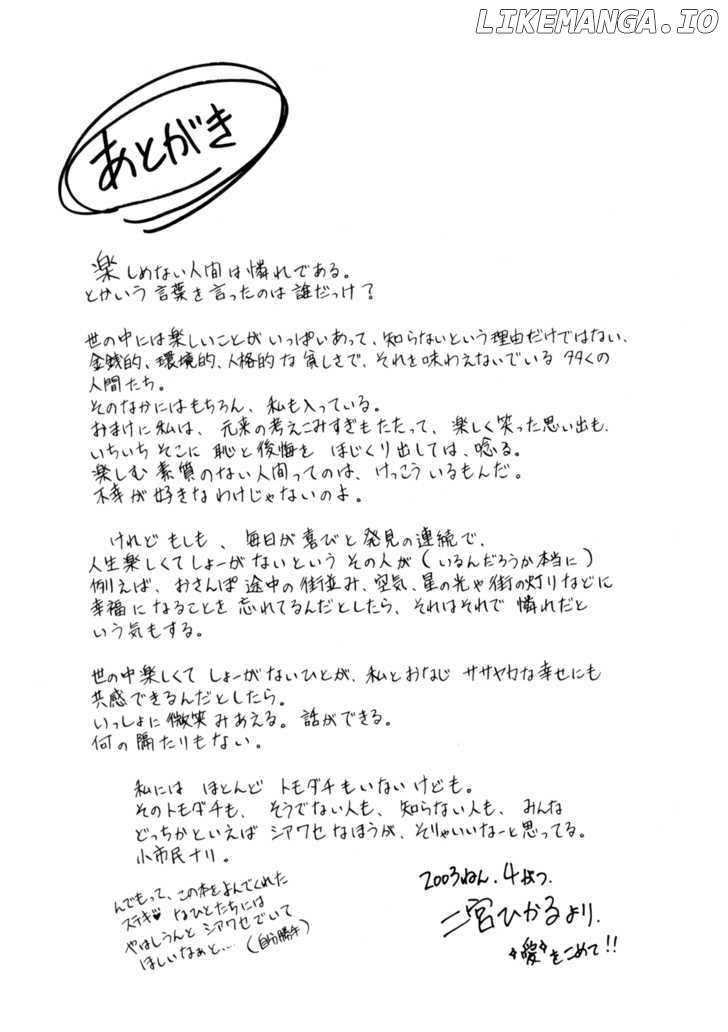 LIKEMANGA.IO
あとがき
楽しめない人間は憐れである。
とかいう言葉を言ったのは誰だっけ？
世の中には楽しいことがいっぱいあって、知らないという理由だけではない、
金銭的、環境的、人格的な貧しさで、それを味わえないでいる多くの
人間たち。
そのなかにはもちろん、私も入っている。
おまけに私は、元来の考えこみすぎもたたって、楽しく笑った思い出も、
いちいちそこに恥と後悔をほじくり出しては、唸る。
楽しむ素質のない人間ってのは、けっこういるもんだ。
不幸が好きなわけじゃないのよ。
けれどもしも、毎日が喜びと発見の連続で、
人生楽しくてしょーがないというその人が（いるんだろうか本当に）
例えば、おさんぽ途中の街並み、空気、星の光や街の灯りなどに
幸福になることを忘れてるんだとしたら、それはそれで憐れだと
いう気もする。
世の中楽しくてしょーがないひとが、私とおなじササヤカな幸せにも
共感できるんだとしたら。
いっしょに微笑みあえる。話ができる。
何の隔たりもない。
私にはほとんどトモダチもいないけども。
そのトモダチも、そうでない人も、知らない人も、みんな
どっちかといえばシアワセなほうが、そりゃいいなーと思ってる。
小市民ナリ。
んでもって、この本をよんでくれた
ステキ♥なひとたちには
やはしうんとシアワセでいて
ほしいなぁと…（自分勝手）
2003ねん.4がつ.
二宮ひかるより.
愛をこめて!!